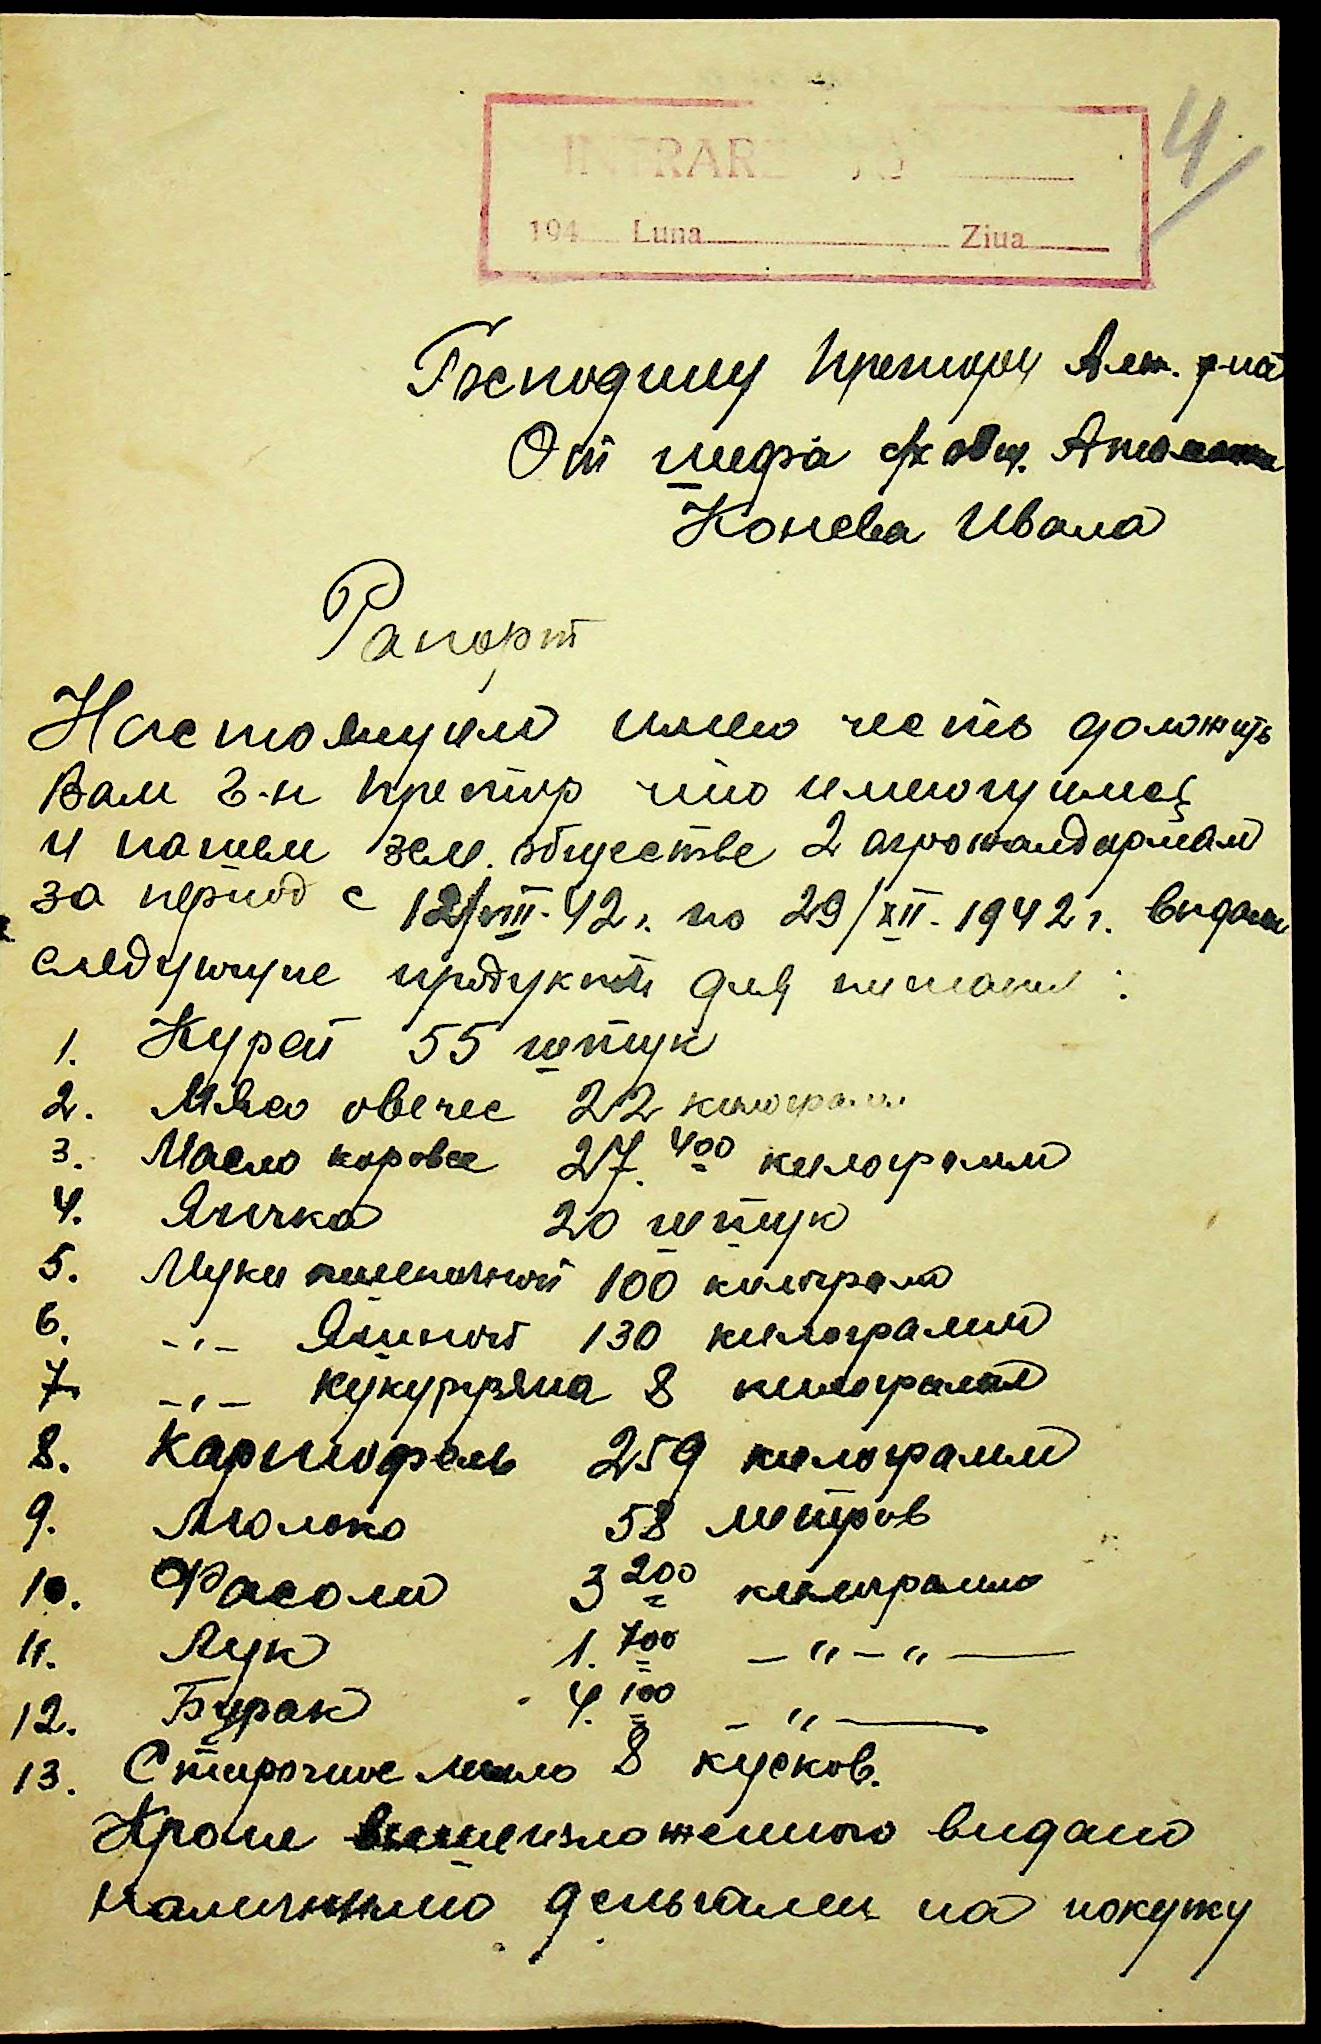 4
INTRARE No
194 Luna Ziua
Господину Претору Ант. р-на
От шефа с/х общ.
Конева Ивана
Рапорт
Настоящем имею честь доложить
Вам г-н претор что имеющимся
и нашем зем. обществе 2 агрожандармам
за период с 12/VIII-42 г. по 29/XII-1942 г. видали
следующие продукти для питания:
1. Курей 55 штук
2. Мясо овечее 22 килограм
3. Масло коровее 27.400 килограмм
4. Яичка 20 штук
5. Муки пшеничной 100 килограмм
6. -"- Ячичной 130 килограмм
7. -"- кукурузяна 8 килограмм
8. Картофель 259 килограмм
9. Молоко 58 литров
10. Фасоли 3 200 килограмм
11. Лук 1.700 -"-"-
12. Бурак 4.100 -"-
13. Стирочное мило 8 кусков.
Кроме вышеизложенного видано
наличними деньгами на покупку